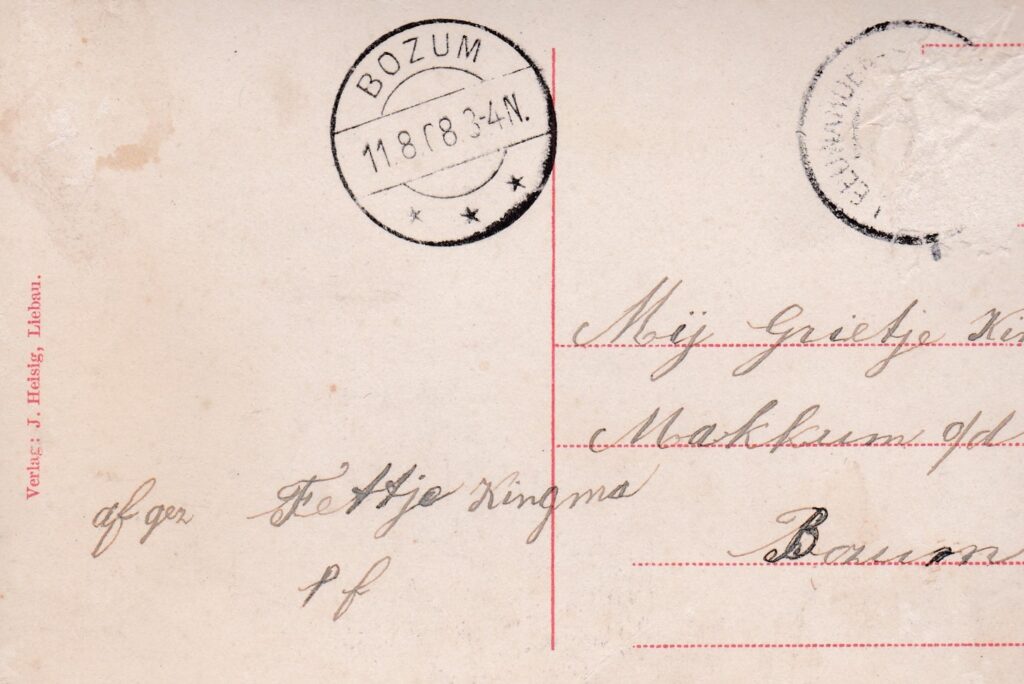 BOZUM
11.8.08.3-4N.
Verlag: J. Heisig, Liebau.
Mij Grietje
Makkum o/d
Bozum
afgez Fettje Kingma
p f